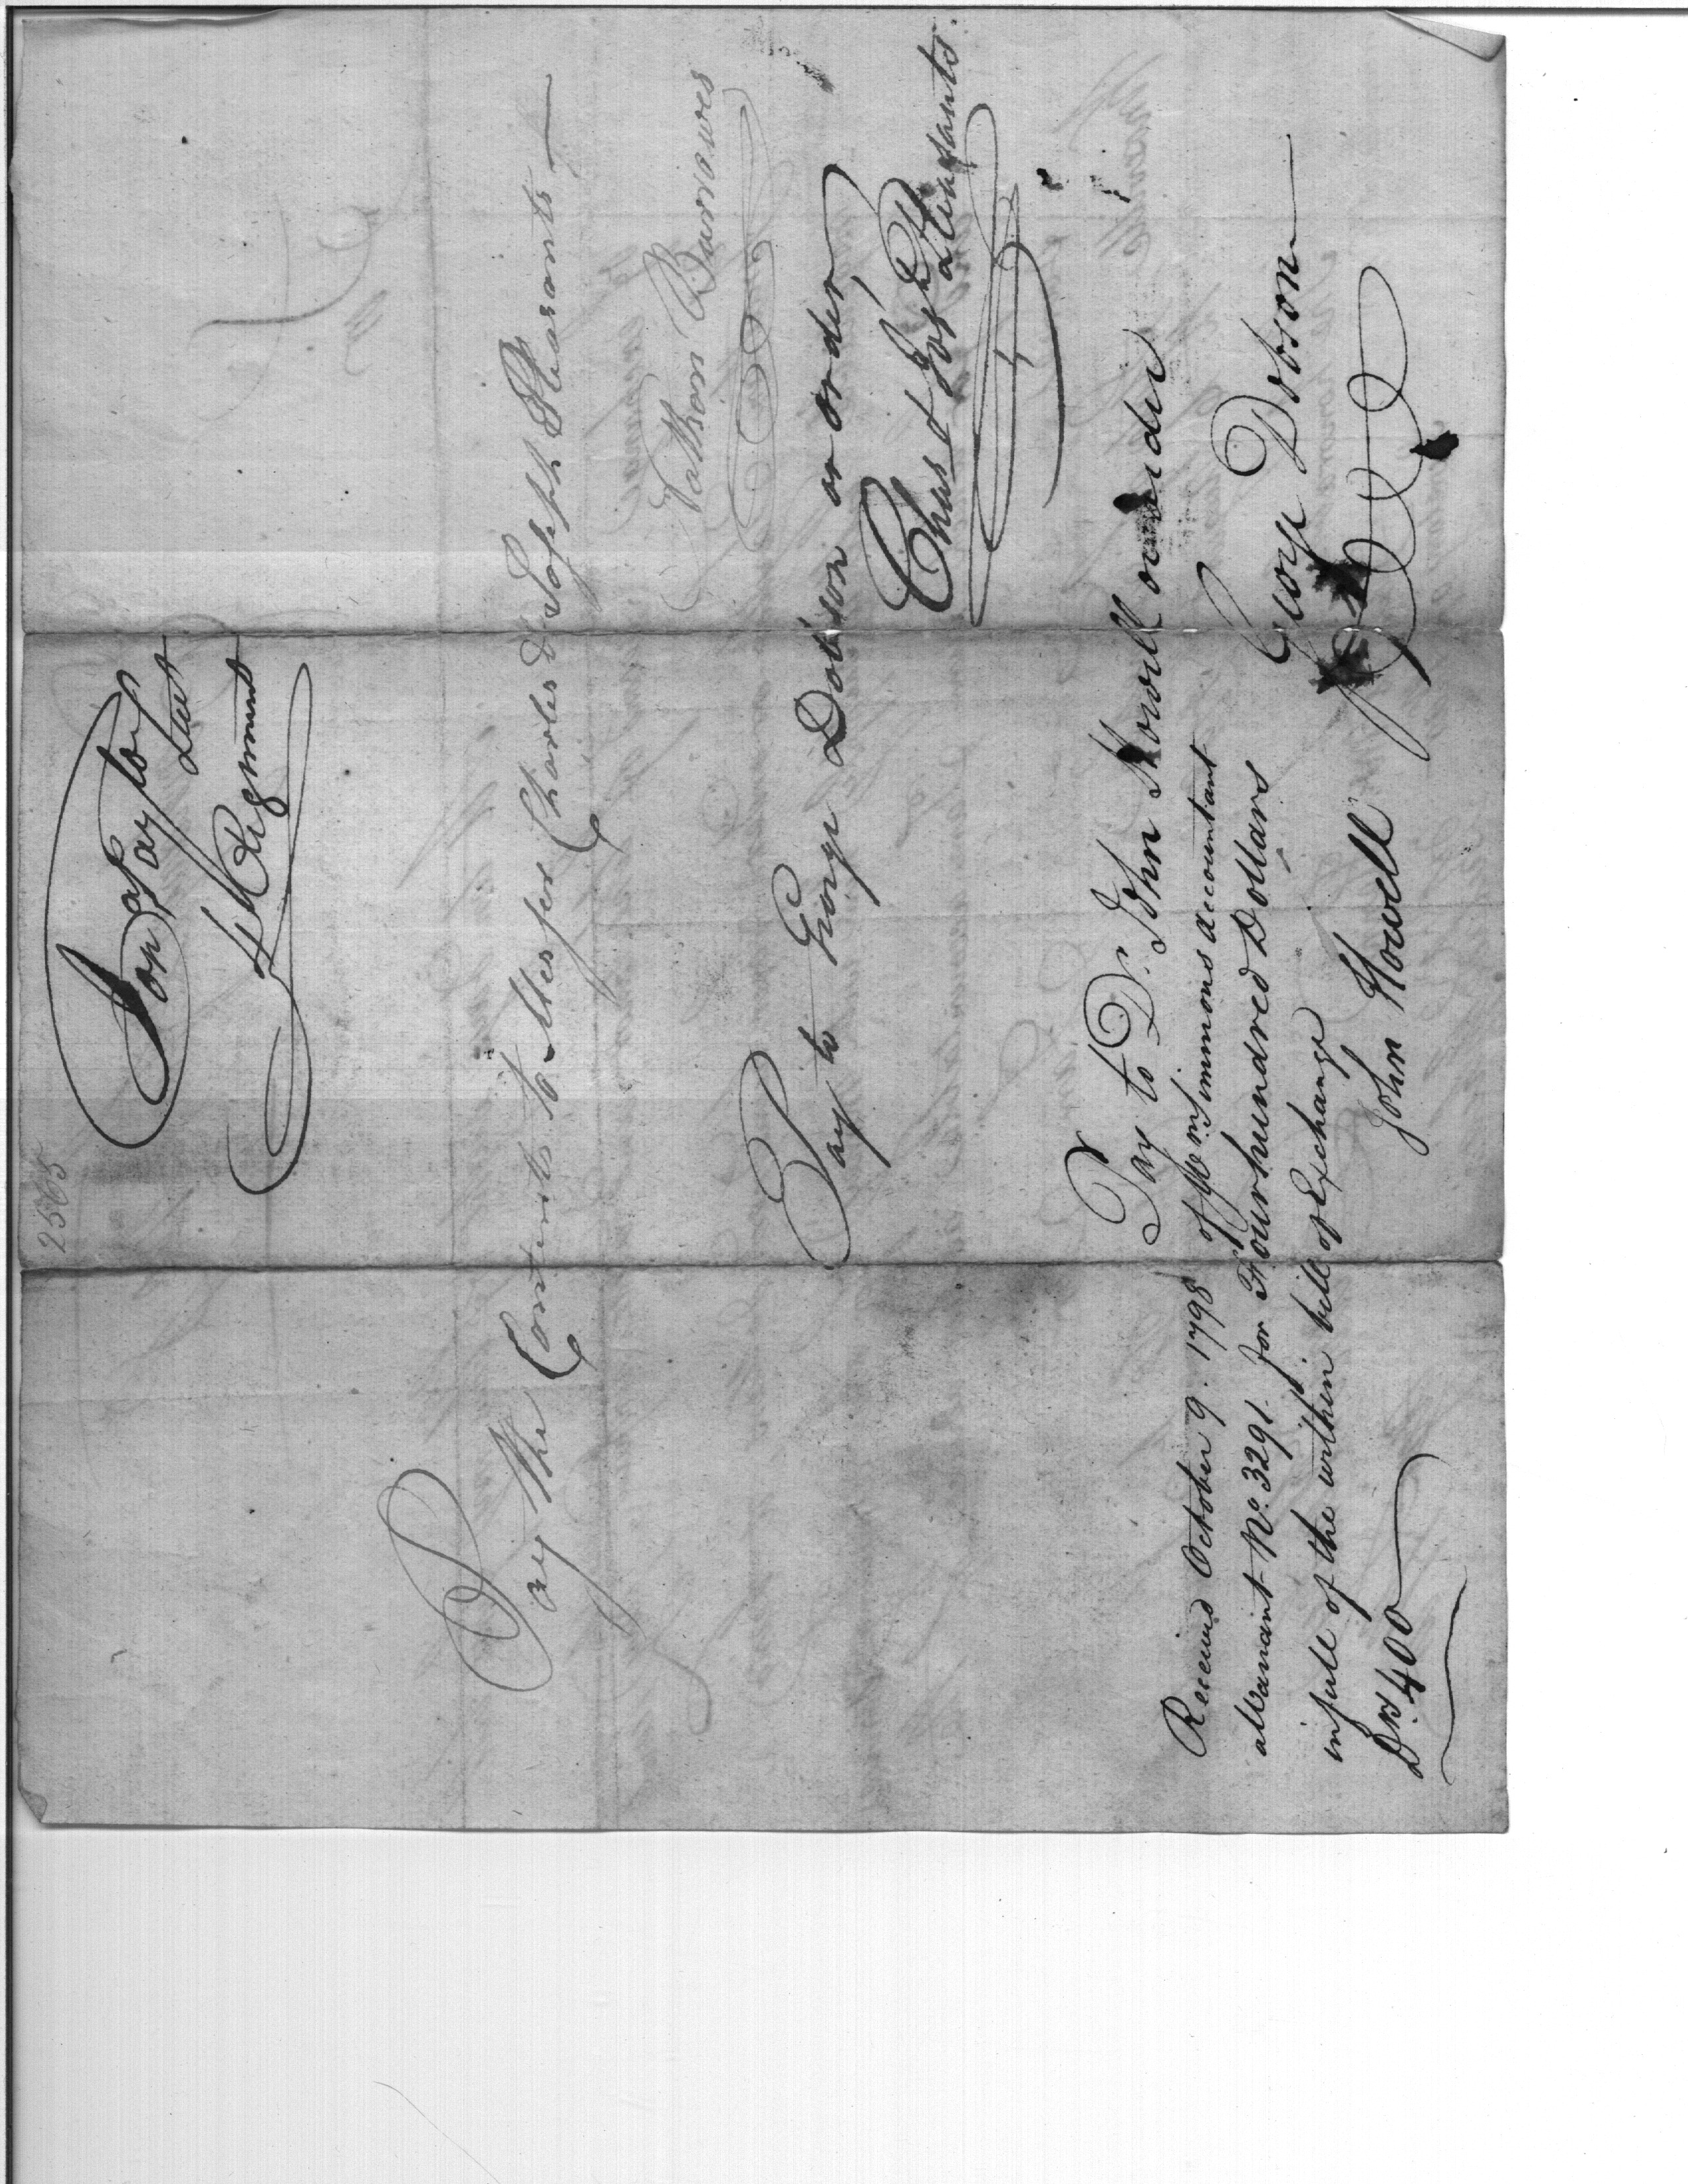 2565
Jon Taylor
Lieut
4 Regiment
Pay the Contents to Messrs Charles & Joseph Pleasants
Nathan Burrowes
Pay to George Dobson or order
Chas & Jos Pleasants.
Pay to Dr. John Howell or order
George Dobson
Received October 9. 1798 of Wm Simmons accountant
a Warrant No. 3291. for Four hundred Dollars
in full of the within bill of Exchange
Drs. 400
John Howell